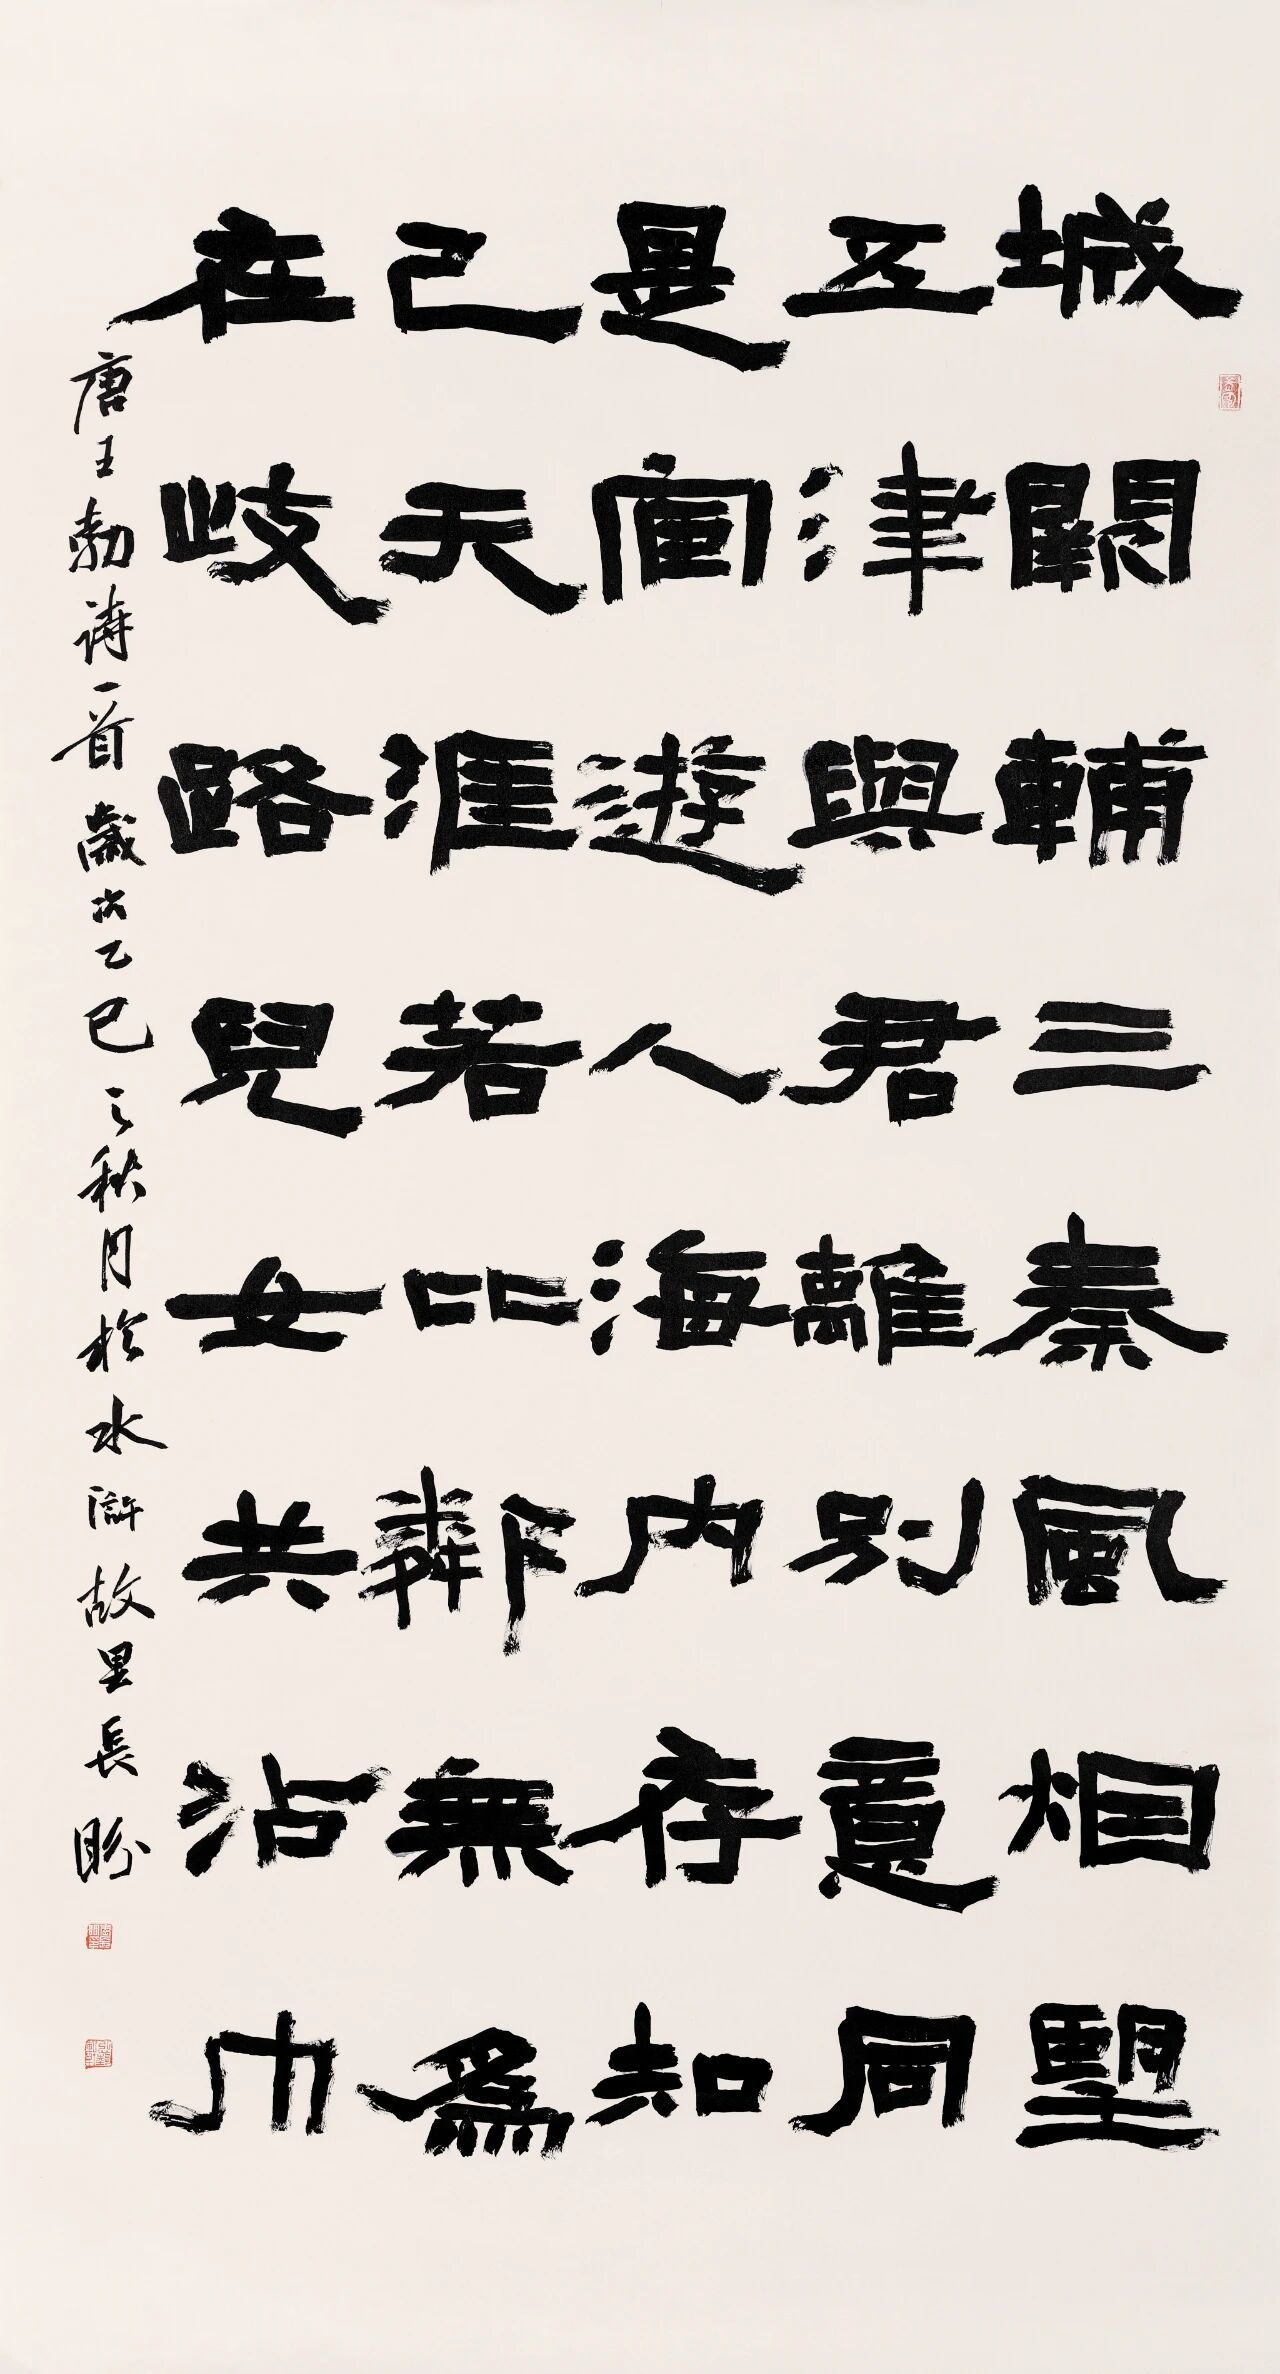 城闕輔三秦風烟望
五津與君離別意同
是宦遊人海內存知
己天涯若比鄰無為
在岐路兒女共沾巾
唐王勃詩一首歲次乙巳之秋月於水滸故里長盼